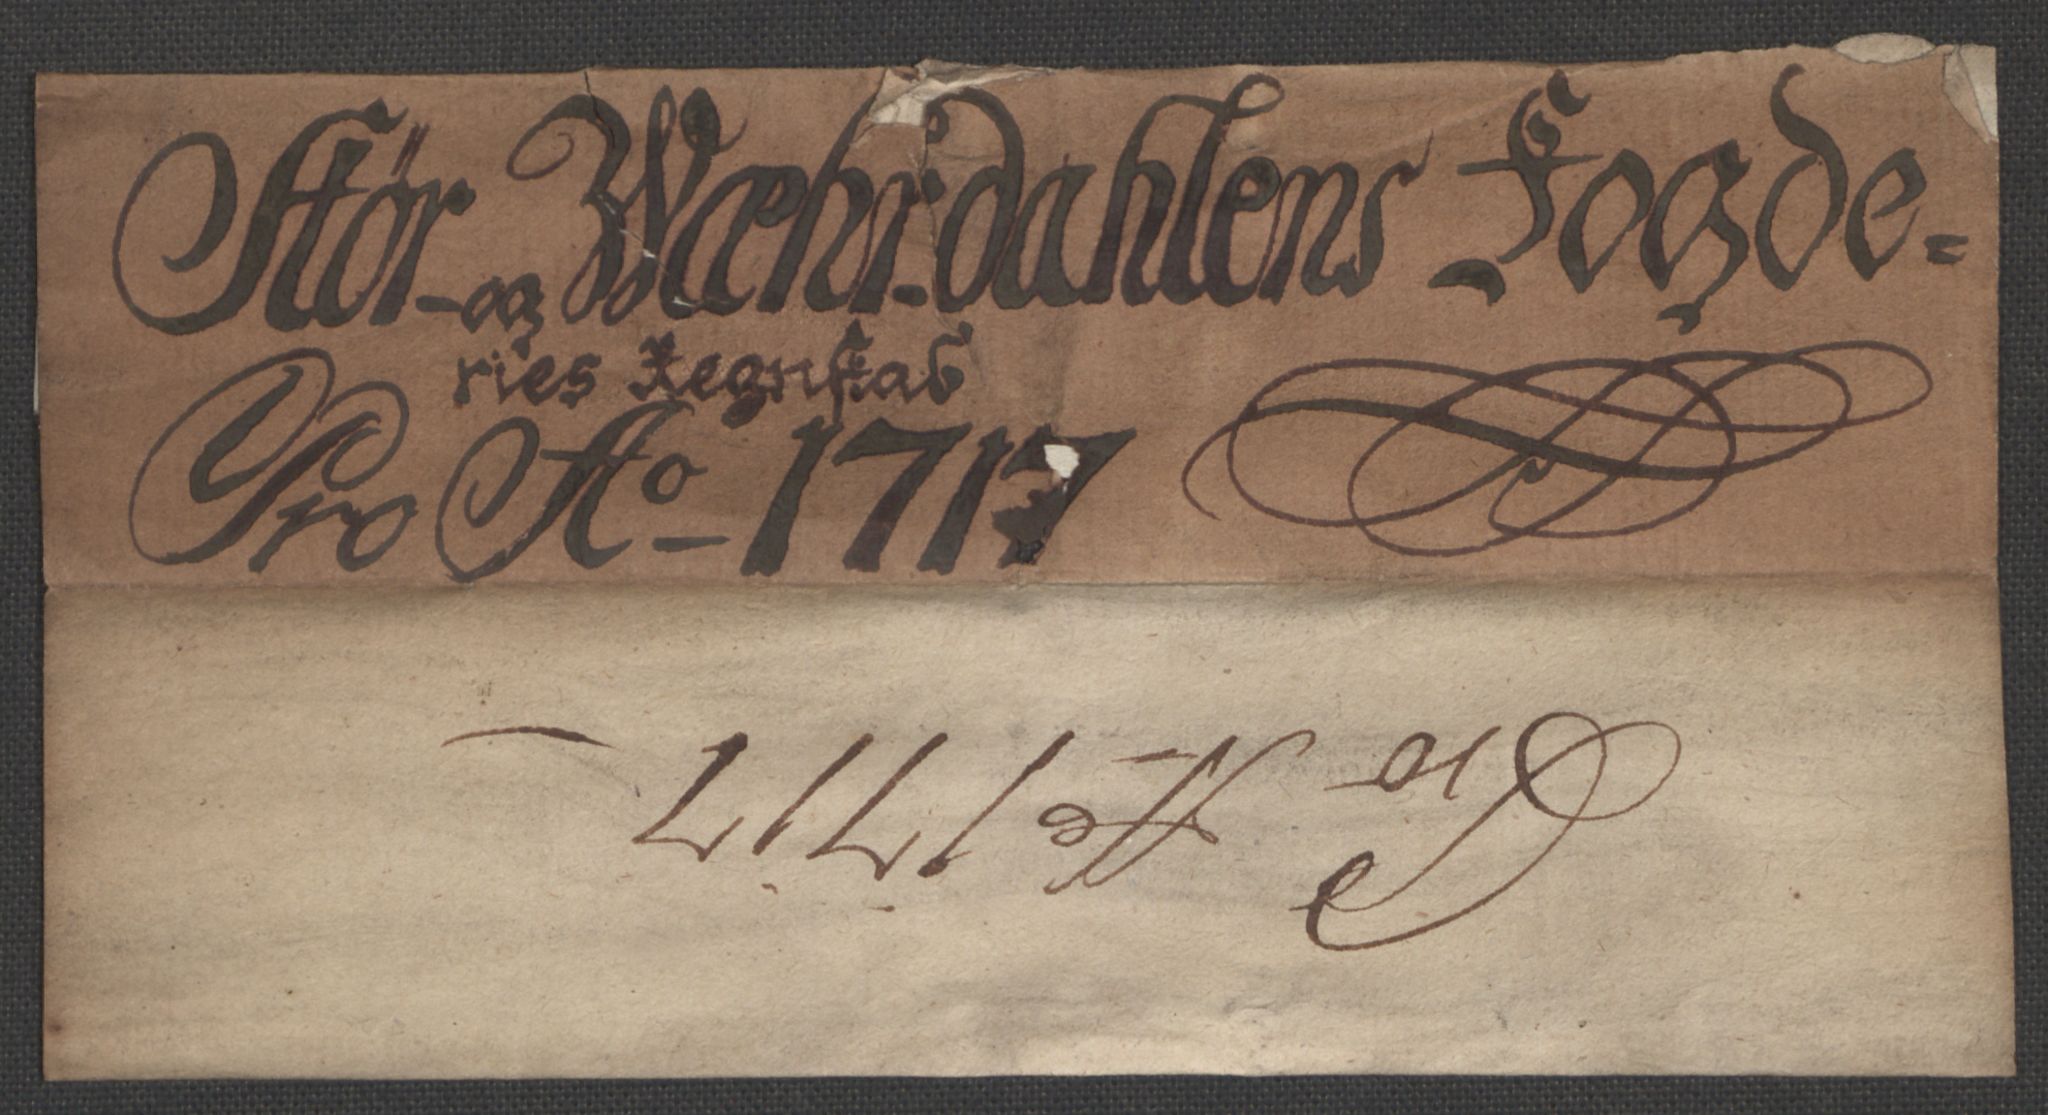 Stör- og Wæhr-dahlens Fogde=
ries Regnskab
Pro Ao 1717
Pro Ao 1717